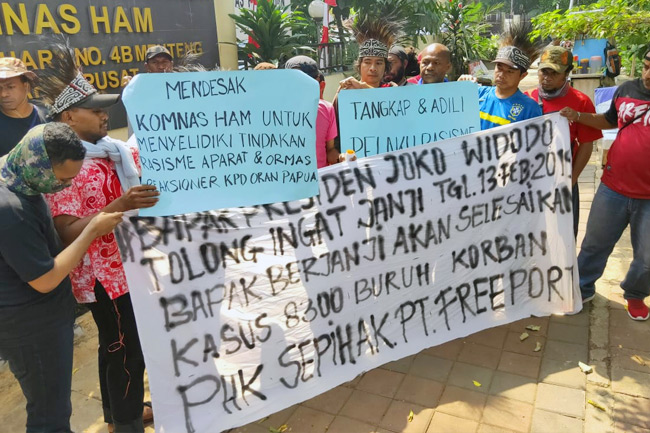 NAS HAM
NO. 4B MENTENG
PUSAT
MENDESAK
KOMNAS HAM UNTUK
MENYELIDIKI TINDAKAN
RASISME APARAT & ORMAS
REAKSIONER KPD ORAN PAPUA
TANGKAP & ADILI
PELAKU RASISME
BAPAK PRESIDEN JOKO WIDODO
TOLONG INGAT JANJI TGL.13 FEB 2019
BAPAK BERJANJI AKAN SELESAIKAN
KASUS 8300 BURUH KORBAN
PHK SEPIHAK.PT.FREEPORT